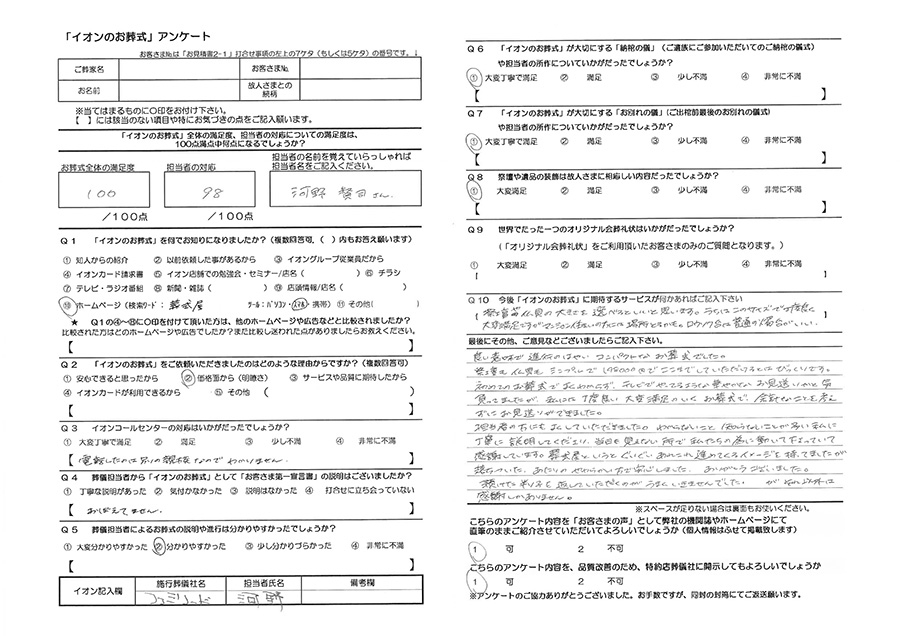 「イオンのお葬式」アンケート
お客さま№は「お見積書2-1」打合せ事項の左上の7ケタ(もしくは5ケタ)の番号です。
ご葬家名
お客さま№
お名前
故人さまとの
続柄
※当てはまるものに○印をお付け下さい。
【 】には該当のない項目や特にお気づきの点をご記入願います。
「イオンのお葬式」全体の満足度、担当者の対応についての満足度は、
100点満点中何点になるでしょうか?
お葬式全体の満足度
担当者の対応
担当者の名前を覚えていらっしゃれば
担当者名をご記入ください。
100
98
河野 さん
/100点
/100点
Q1 「イオンのお葬式」を何でお知りになりましたか?(複数回答可、( )内もお答え願います)
① 知人からの紹介 ② 以前依頼した事があるから ③ イオングループ従業員だから
④ イオンカード請求書 ⑤ イオン店舗での勉強会・セミナー/店名( ) ⑥ チラシ
⑦ テレビ・ラジオ番組 ⑧ 新聞・雑誌( ) ⑨ 店頭情報/店名( )
⑩ ホームページ(検索ワード: 葬式屋 ツール:パソコン・スマホ・携帯) ⑪ その他( )
★ Q1の④~⑩に○印を付けて頂いた方は、他のホームページや広告などと比較されましたか?
比較された方はどのホームページや広告でしたか?また比較し迷われた点がありましたらお教えください。
【 】
Q2 「イオンのお葬式」をご依頼いただきましたのはどのような理由からですか?(複数回答可)
① 安心できると思ったから ② 価格面から(明瞭さ) ③ サービスや品質に期待したから
④ イオンカードが利用できるから ⑤ その他 ( )
【 】
Q3 イオンコールセンターの対応はいかがだったでしょうか?
① 大変丁寧で満足 ② 満足 ③ 少し不満 ④ 非常に不満
【 電話したのは別の親族なのでわかりません 】
Q4 葬儀担当者から「イオンのお葬式」として「お客さま第一宣言書」の説明はございましたか?
① 丁寧な説明があった ② 気付かなかった ③ 説明はなかった ④ 打合せに立ち会っていない
【 おぼえてません。 】
Q5 葬儀担当者によるお葬式の説明や進行は分かりやすかったでしょうか?
① 大変分かりやすかった ② 分かりやすかった ③ 少し分かりづらかった ④ 非常に不満
【 】
イオン記入欄
施行葬儀社名
担当者氏名
備考欄
ファミリード
河野
Q6 「イオンのお葬式」が大切にする「納棺の儀」(ご遺族にご参加いただいてのご納棺の儀式)
や担当者の所作についていかがだったでしょうか?
① 大変丁寧で満足 ② 満足 ③ 少し不満 ④ 非常に不満
【 】
Q7 「イオンのお葬式」が大切にする「お別れの儀」(ご出棺前最後のお別れの儀式)
や担当者の所作についていかがだったでしょうか?
① 大変丁寧で満足 ② 満足 ③ 少し不満 ④ 非常に不満
【 】
Q8 祭壇や遺品の装飾は故人さまに相応しい内容だったでしょうか?
① 大変満足 ② 満足 ③ 少し不満 ④ 非常に不満
【 】
Q9 世界でたった一つのオリジナル会葬礼状はいかがだったでしょうか?
(「オリジナル会葬礼状」をご利用頂いたお客さまのみのご質問となります。)
① 大変満足 ② 満足 ③ 少し不満 ④ 非常に不満
【 】
Q10 今後「イオンのお葬式」に期待するサービスが何かあればご記入下さい
の大きさを選べるといいと思います。うちはこのサイズで丁度良く
大変満足ですが
最後にその他、ご意見などございましたらご記入下さい。
良い意味で進行のはやい コンパクトなお葬式でした。
祭壇も仏具もミニサイズで198000円でここまでしていただけるとはびっくりです。
初めてのお葬式でよくわからず、テレビでやってるような
丁度良い大変満足のいくお葬式で、余計なことを考え
ずにお見送りができました。
担当者の方にもよくしていただきました。わからないこと 知らないことが多い私に
丁寧に説明してくださり、当日も見えない所で私たちの為に動いて下さっていて
感謝しています。葬式屋というとぐいぐい進めてくるイメージを持ってましたが
安心しました。ありがとうございました。
うまくいきませんでした。 がそれ以外は
感謝しかありません。
※スペースが足りない場合は裏面もお使いください。
こちらのアンケート内容を「お客さまの声」として弊社の機関誌やホームページにて
直筆のままご紹介させていただいてよろしいでしょうか(個人情報はふせて掲載致します)
1 可 2 不可
こちらのアンケート内容を、品質改善のため、特約店葬儀社に開示してもよろしいでしょうか
1 可 2 不可
※アンケートのご協力ありがとうございました。お手数ですが、同封の封筒にてご返送願います。